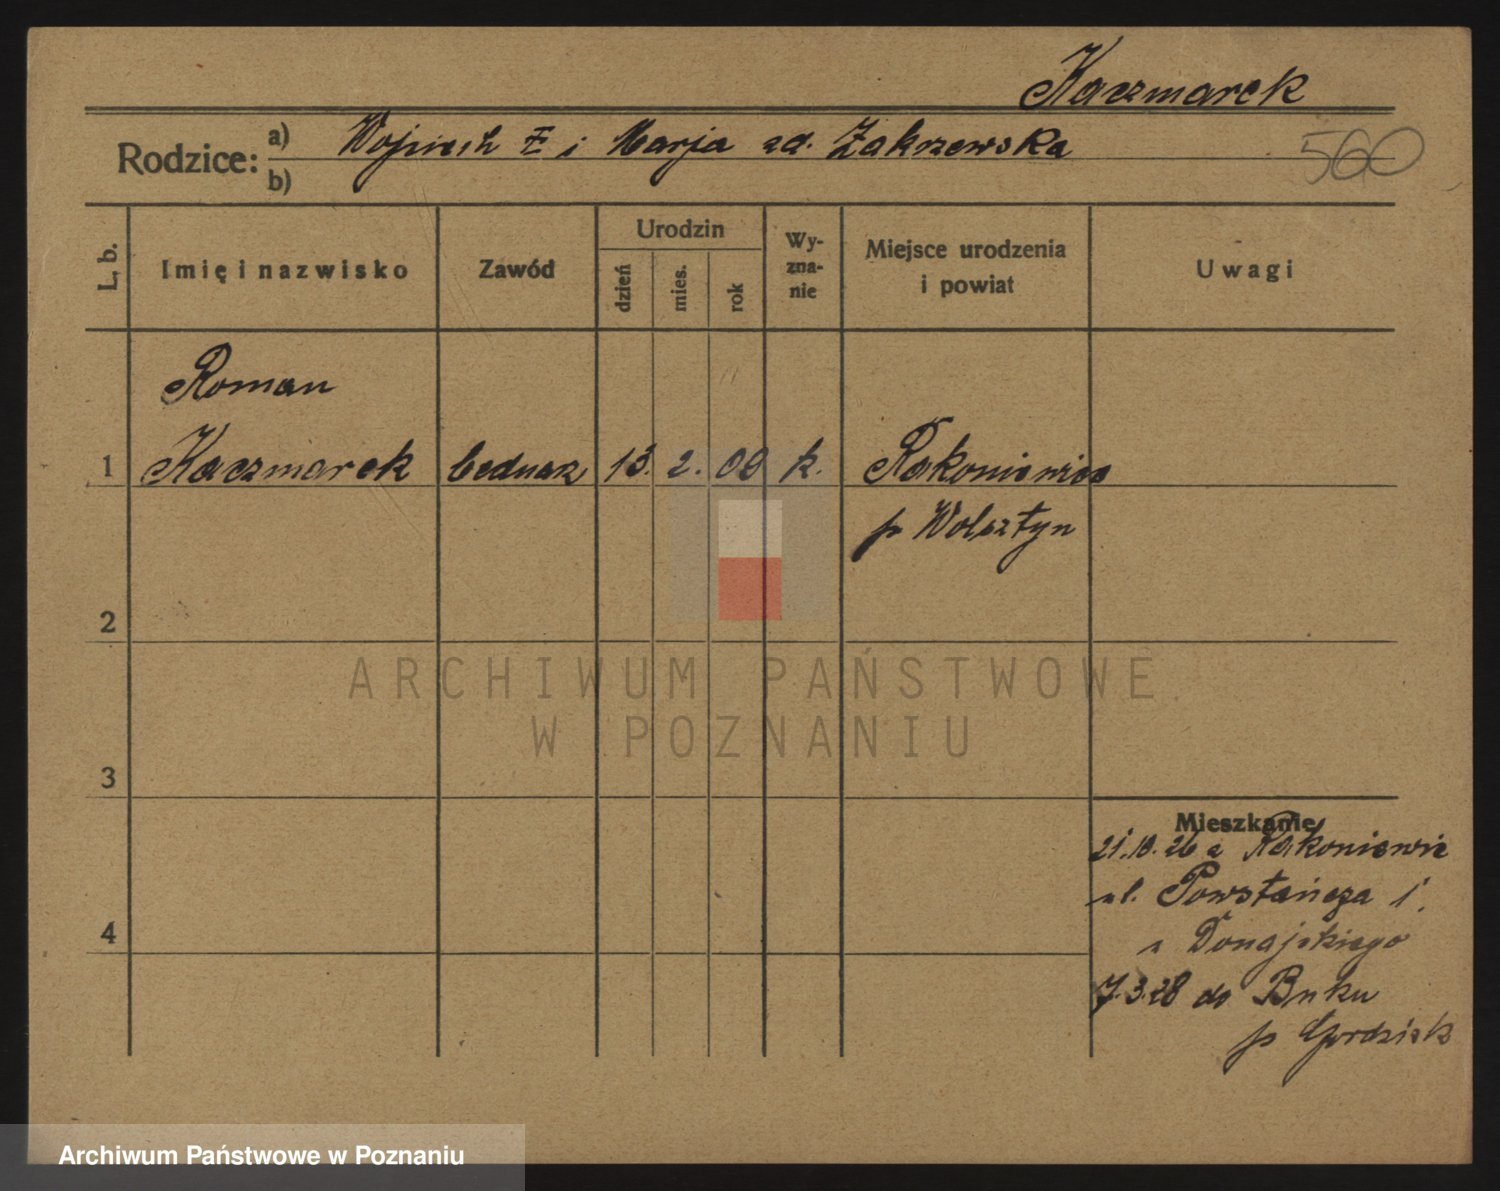 Kaczmarek
Rodzice: a) Wojciech i Marja zd. Zakrzewska
b)
560
L. b. Imię i nazwisko Zawód Urodzin dzień mies. rok Wy-zna-nie Miejsce urodzenia i powiat Uwagi
Roman
1 Kaczmarek bednarz 13. 2. 09 k. Rakoniewice
p Wolsztyn
2
ARCHIWUM PAŃSTWOWE
W POZNANIU
3
Mieszkanie
21.10.26 z Rakoniewic
ul. Powstańcza 1.
u Donajskiego
4
7.3.28 do Buku
p Grodzisk
Archiwum Państwowe w Poznaniu